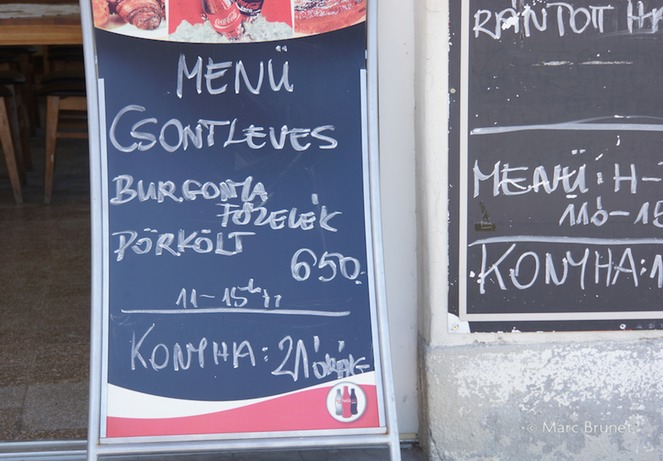 MENÜ
CSONTLEVES
BURGONYA
FŐZELÉK
PÖRKÖLT
650.
11-15
KONYHA: 21 óráig
RÁNTOTT
MENÜ: H-
KONYHA: 1
© Marc Brunet